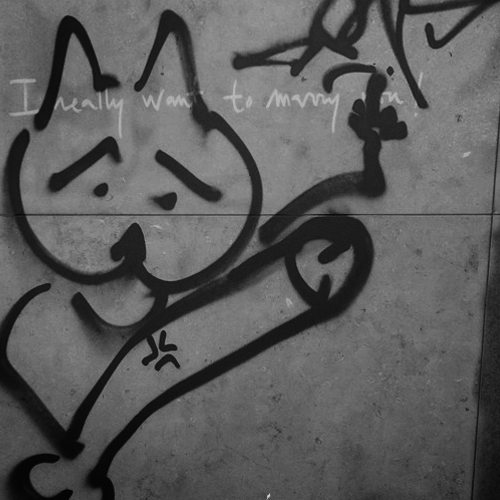 I really want to marry you!